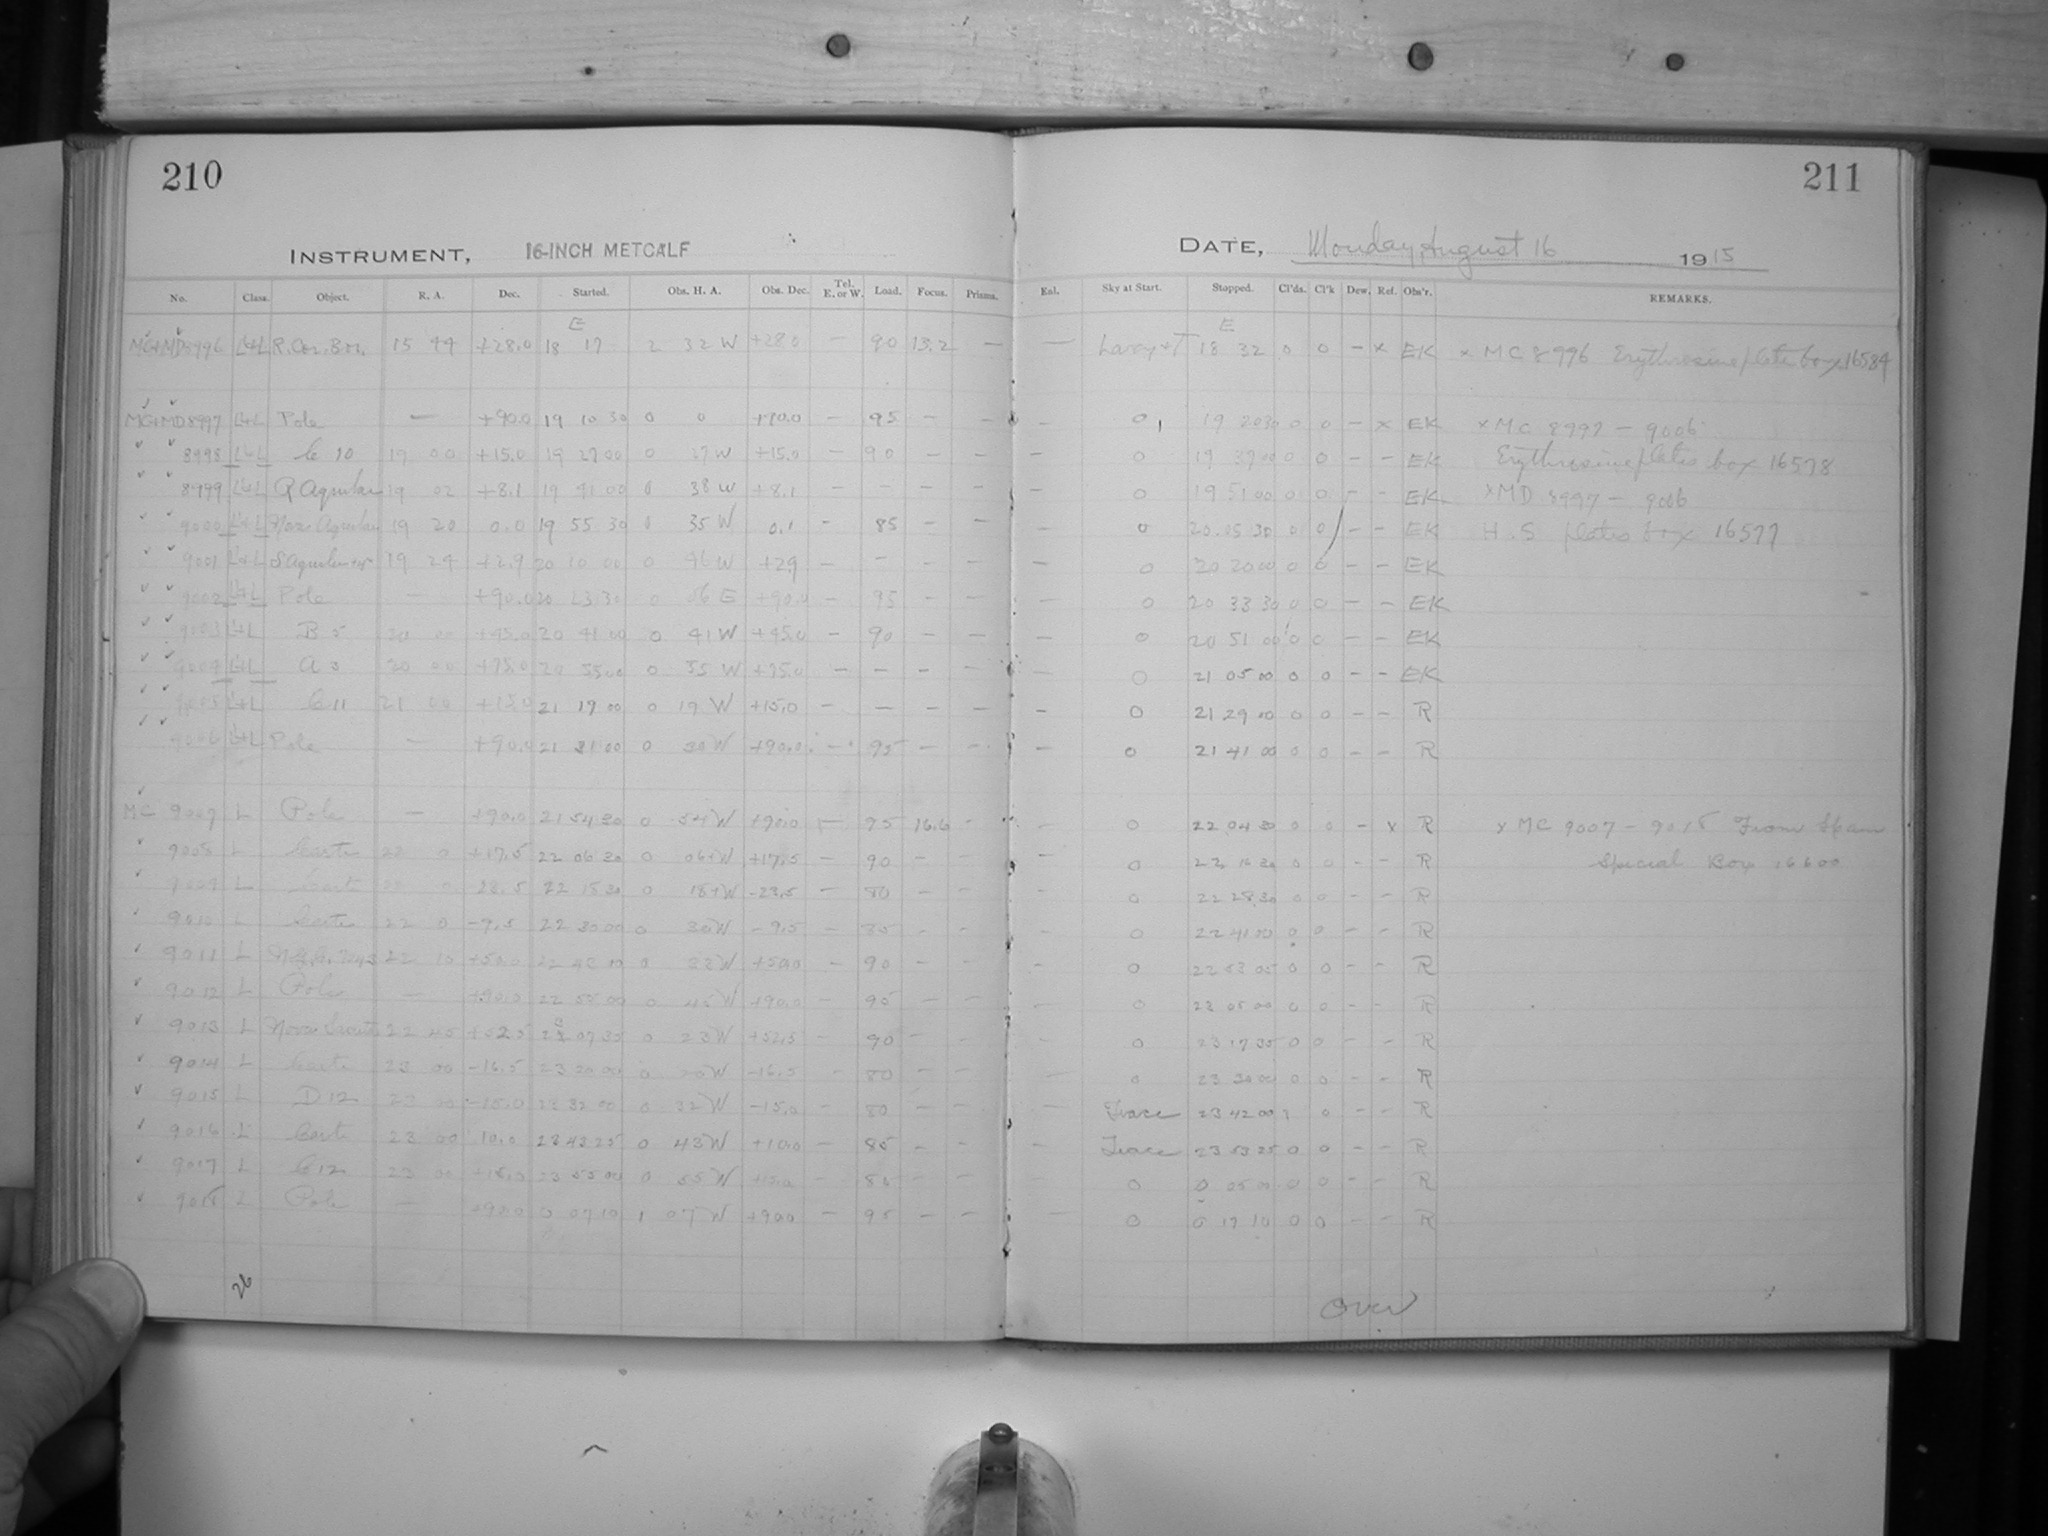 210
211
INSTRUMENT, 16-INCH METCALF
DATE, Monday, August 16 1915
No. Class. Object. R. A. Dec. Started. Obs. H. A. Obs. Dec. Tel. E. or W. Load. Focus. Prisms. Enl. Sky at Start. Stopped. Cl'ds. Cl'k Dew. Ref. Obs'r. REMARKS.
E E
MC+MD8996 L+L R. Cor. Bor. 15 44 +28.0 18 17 2 32 W +28.0 — 90 13.2 — — 18 32 0 0 — x EK x MC 8996 Erythrosine plates box 16584
MC+MD8997 L+L Pole — +90.0 19 10 30 0 0 +90.0 — 95 — — 0 19 20 30 0 0 — x EK x MC 8997 - 9006
8998 L+L C 10 19 00 +15.0 19 27 00 0 27 W +15.0 — 90 — — — 0 19 37 00 0 0 — — EK Erythrosine plates box 16578
8999 L+L R Aquilae 19 02 +8.1 19 41 00 0 38 W +8.1 — — — — — 0 19 51 00 0 0 — — EK x MD 8997 - 9006
9000 L+L Nova Aquilae 19 20 0.0 19 55 30 0 35 W 0.1 — 85 — — — 0 20 05 30 0 0 — — EK H.S plates box 16577
9001 L+L 19 24 +2.9 20 10 00 0 46 W +2.9 — — — — — 0 20 20 00 0 0 — — EK
9002 L+L Pole — +90.0 20 23 30 0 06 E +90.0 — 95 — — — 0 20 33 30 0 0 — — EK
9003 L+L B 5 20 00 +45.0 20 41 00 0 41 W +45.0 — 90 — — — 0 20 51 00 0 0 — — EK
9004 L+L A 3 20 00 +75.0 20 55 00 0 55 W +75.0 — — — — — 0 21 05 00 0 0 — — EK
9005 L+L C 11 21 00 +15.0 21 19 00 0 19 W +15.0 — — — — — 0 21 29 00 0 0 — — R
9006 L+L Pole — +90.0 21 31 00 0 30 W +90.0 — 95 — — — 0 21 41 00 0 0 — — R
MC 9007 L Pole — +90.0 21 54 30 0 54 W +90.0 — 95 16.6 — — 0 22 04 30 0 0 — x R x MC 9007 - 9018 From
9008 L Carte 22 0 +17.5 22 06 30 0 06+W +17.5 — 90 — — — 0 22 16 30 0 0 — — R Special Box 16600
9009 L Carte 22 0 22 18 30 0 18+W -23.5 — 80 — — 0 22 28 30 0 0 — — R
9010 L Carte 22 0 -9.5 22 30 00 0 30 W -9.5 — 85 — — — 0 22 41 00 0 0 — — R
9011 L 22 10 +50.0 0 W +50.0 — 90 — — — 0 22 53 05 0 0 — — R
9012 L Pole — +90.0 22 55 00 0 45 W +90.0 — 95 — — — 0 23 05 00 0 0 — — R
9013 L Nova 22 +52.5 23 07 35 0 23 W +52.5 — 90 — — 0 23 17 35 0 0 — — R
9014 L Carte 23 00 -16.5 23 20 00 0 20 W -16.5 — 80 — — — 0 23 30 00 0 0 — — R
9015 L D 12 23 00 -15.0 23 32 00 0 32 W -15.0 — 80 — — — Trace 23 42 00 0 — — R
9016 L Carte 23 00 10.0 23 43 25 0 43 W +10.0 — 85 — — — Trace 23 53 25 0 0 — — R
9017 L C 12 23 00 +15.0 23 55 00 0 55 W +15.0 — 85 — — — 0 0 05 00 0 0 — — R
9018 L Pole — +90.0 0 07 10 1 07 W +90.0 — 95 — — — 0 0 17 10 0 0 — — R
26
Over